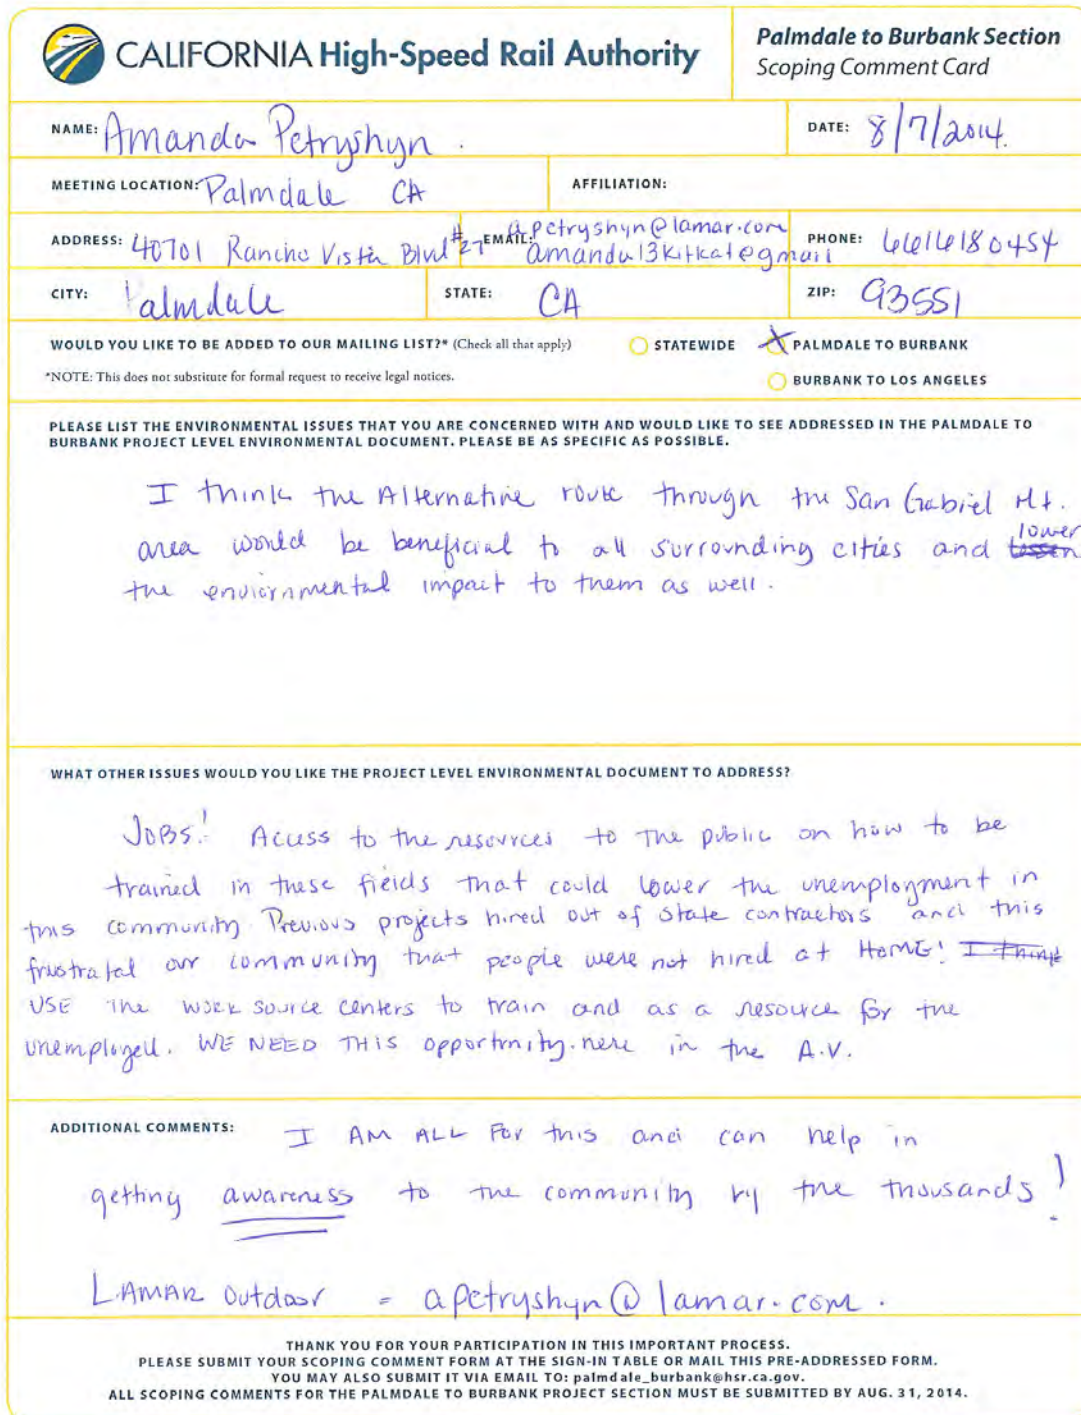 CALIFORNIA High-Speed Rail Authority
Palmdale to Burbank Section
Scoping Comment Card
NAME: Amanda Petryshyn.
DATE: 8/7/2014.
MEETING LOCATION: Palmdale CA
AFFILIATION:
ADDRESS: 40701 Rancho Vista Blvd #27
EMAIL: apetryshyn@lamar.com
amanda13kitkat@gmail
PHONE: 6616180454
CITY: Palmdale
STATE: CA
ZIP: 93551
WOULD YOU LIKE TO BE ADDED TO OUR MAILING LIST?* (Check all that apply)
STATEWIDE
PALMDALE TO BURBANK
*NOTE: This does not substitute for formal request to receive legal notices.
BURBANK TO LOS ANGELES
PLEASE LIST THE ENVIRONMENTAL ISSUES THAT YOU ARE CONCERNED WITH AND WOULD LIKE TO SEE ADDRESSED IN THE PALMDALE TO
BURBANK PROJECT LEVEL ENVIRONMENTAL DOCUMENT. PLEASE BE AS SPECIFIC AS POSSIBLE.
I think the Alternative route through the San Gabriel Mt.
area would be beneficial to all surrounding cities and lessen lower
the enviornmental impact to them as well.
WHAT OTHER ISSUES WOULD YOU LIKE THE PROJECT LEVEL ENVIRONMENTAL DOCUMENT TO ADDRESS?
JOBS! Access to the resources to the public on how to be
trained in these fields that could lower the unemployment in
this community. Previous projects hired out of state contractors and this
frustrated our community that people were not hired at HOME! I think
USE the work source centers to train and as a resource for the
unemployed. WE NEED THIS opportunity here in the A.V.
ADDITIONAL COMMENTS: I AM ALL For this and can help in
getting awareness to the community by the thousands!
LAMAR Outdoor = apetryshyn@lamar.com.
THANK YOU FOR YOUR PARTICIPATION IN THIS IMPORTANT PROCESS.
PLEASE SUBMIT YOUR SCOPING COMMENT FORM AT THE SIGN-IN TABLE OR MAIL THIS PRE-ADDRESSED FORM.
YOU MAY ALSO SUBMIT IT VIA EMAIL TO: palmdale_burbank@hsr.ca.gov.
ALL SCOPING COMMENTS FOR THE PALMDALE TO BURBANK PROJECT SECTION MUST BE SUBMITTED BY AUG. 31, 2014.